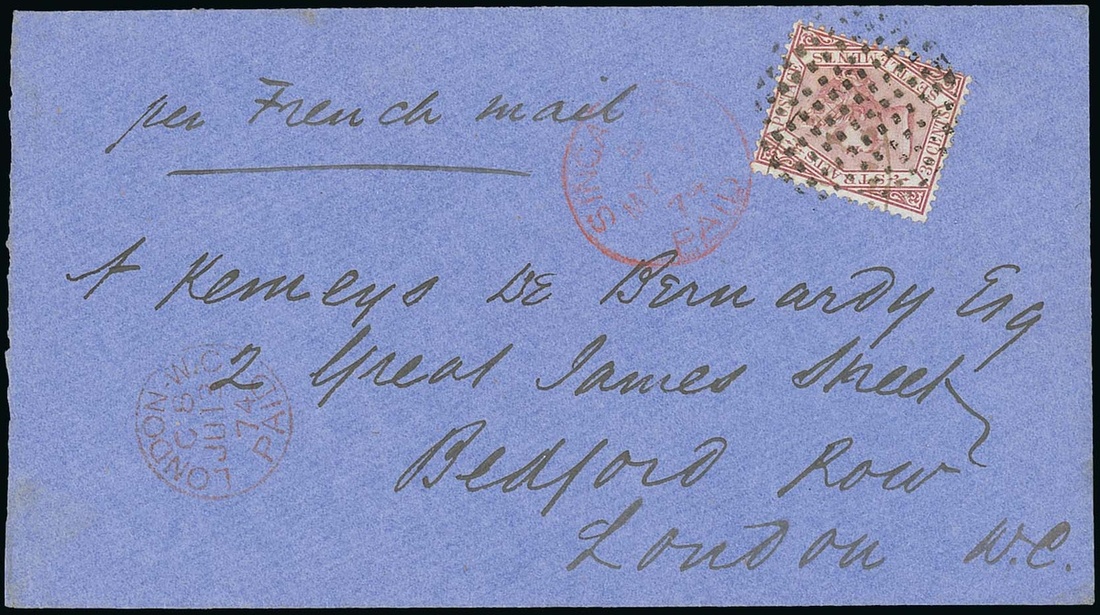 per French mail
STRAITS SETTLEMENTS
POSTAGE
30 CENTS
SINGA
MY
74
PAID
A Kemeys De Bernardy Esq
2 Great James Street
Bedford Row
London W.C.
LONDON-W.C
PAID
C 8
JU 1
74